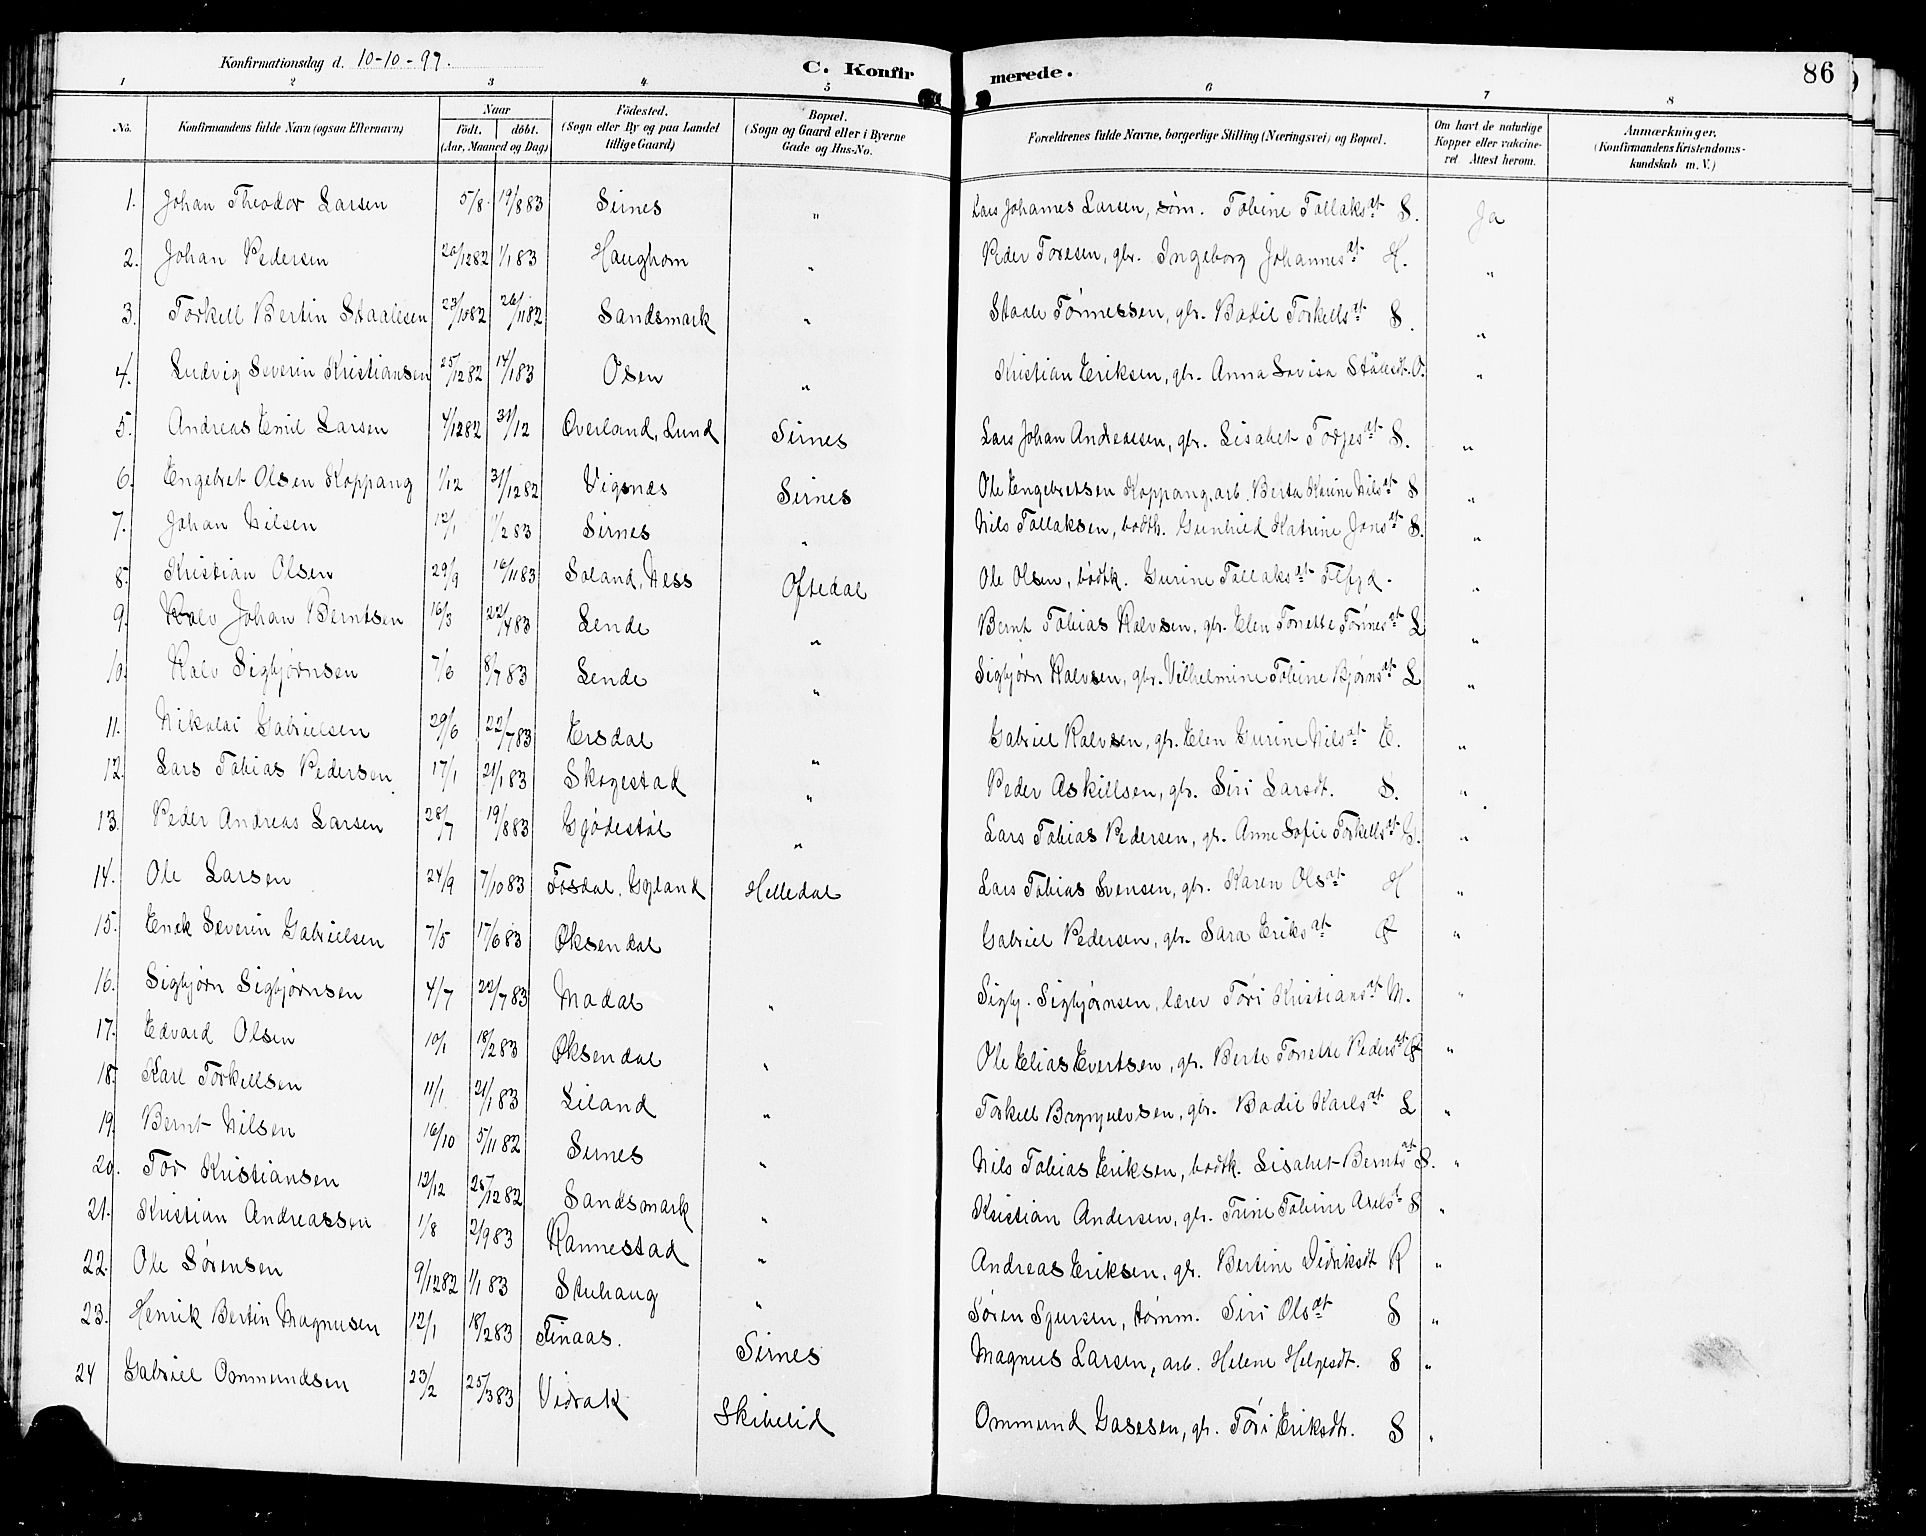 Konfirmationsdag d. 10-10-97. C. Konfirmerede. 86
1 2 3 4 5 6 7 8
No. Konfirmandens fulde Navn (ogsaa Efternavn) Naar födt. döbt. (Aar, Maaned og Dag) Födested. (Sogn eller By og paa Landet tillige Gaard) Bopæl. (Sogn og Gaard eller i Byerne Gade og Hus-No. Forældrenes fulde Navne, borgerlige Stilling (Næringsvei) og Bopæl. Om havt de naturlige Kopper eller vakcineret. Attest herom. Anmærkninger. (Konfirmandens Kristendomskundskab m. V.)
1. Johan Theodor Larsen 5/8 19/8 83 Sirnes " Lars Johannes Larsen, søm. Tobine Tollaksdt S. Ja
2. Johan Pedersen 20/12 82 1/1 83 Haughom " Peder Toresen, gbr. Ingeborg Johannesdt H. "
3. Torkell Bertin Staalesen 23/10 82 26/11 82 Sandsmark " Staale Tønnessen, gbr. Bodil Torkellsdt S. "
4. Ludvig Severin Kristiansen 25/12 82 14/1 83 Osen " Kristian Eriksen, gbr. Anna Lovisa Ståles dt. O. "
5. Andreas Emil Larsen 4/12 82 31/12 Overland, Lund Sirnes Lars Johan Andreasen, gbr. Lisabet Torjesdt S. "
6. Engebret Olsen Koppang 1/12 31/12 82 Vigsnes Sirnes Ole Engebretsen Koppang, arb. Berta Karine Nilsdt S "
7. Johan Nilsen 12/1 11/2 83 Sirnes " Nils Tollaksen, bodtk. Gunhild Katrine Jonsdt S. "
8. Kristian Olsen 29/9 16/11 83 Soland, Ness Oftedal Ole Olsen, bódtk. Gurine Tollaksdt "
9. Kalv Johan Berntsen 16/3 22/4 83 Lende " Bernt Tobias Kalvsen, gbr. Elen Tonette Tønnesdt L "
10. Kalv Sigbjørnsen 7/6 8/7 83 Lende " Sigbjørn Kalvsen, gbr. Vilhelmine Tobine Bjørnsdt L "
11. Nikolai Gabrielsen 29/6 22/7 83 Ersdal " Gabriel Kalvsen, gbr. Elen Gurine Nilsdt E. "
12. Lars Tobias Pedersen 17/1 21/1 83 Skogestad " Peder Askillsen, gbr. Siri Larsdt. S. "
13. Peder Andreas Larsen 28/7 19/8 83 Gjødestøl " Lars Tobias Pedersen, gbr. Anne Sofie Torkellsdt G. "
14. Ole Larsen 24/9 7/10 83 Fosdal, Gyland Helledal Lars Tobias Svensen, gbr. Karen Olsdt H "
15. Enok Severin Gabrielsen 7/5 17/6 83 Øksendal Gabriel Pedersen, gbr. Sara Eriksdt Ø "
16. Sigbjørn Sigbjørnsen 4/7 22/7 83 Modal " Sigbj. Sigbjørnsen, lærer Tøri Kristiansdt M. "
17. Edvard Olsen 10/1 18/2 83 Øksendal " Ole Elias Evertsen, gbr. Berte Tonette Pedersdt Ø "
18. Karl Torkellsen 11/1 21/1 83 Liland " Torkell Brynjulvsen, gbr. Bodil Karlsdt L "
19. Bernt Nilsen 16/10 5/11 82 Sirnes " Nils Tobias Eriksen, bodtk. Lisabet Berntsdt S. "
20. Tor Kristiansen 12/12 26/12 82 Sandsmark " Kristian Andersen, gbr. Trine Tobine Axelsdt S "
21. Kristian Andreassen 1/8 2/9 83 Rannestad " Andreas Eriksen, gbr. Bertine Didriksdt R "
22. Ole Sørensen 9/12 82 1/1 83 Stuhaug " Søren Sjursen, tømm. Siri Olsdt S "
23. Henrik Bertin Magnusen 12/1 18/2 83 Finaas. Sirnes Magnus Larsen, arb. Helene Helgesdt. S "
24 Gabriel Ommundsen 23/2 25/3 83 Vidrak Skibelid Ommund Gasesen, gbr. Tøri Eriksdtr. S "